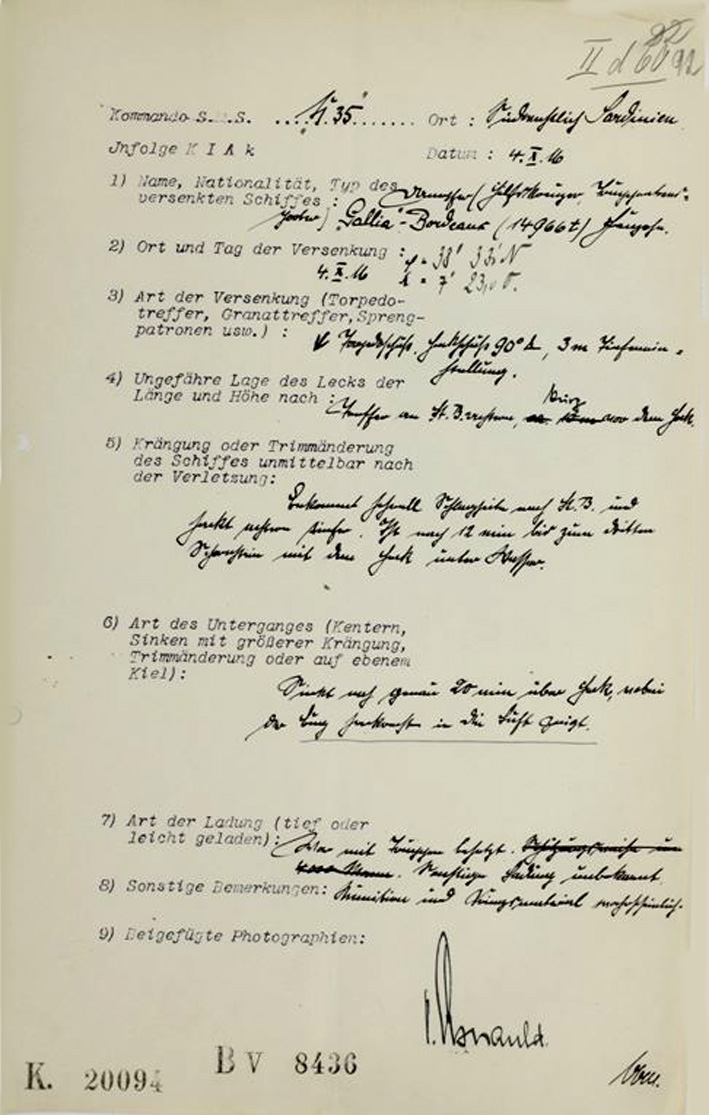 II d 6092
82
Kommando S.M.S. ...."U. 35"....... Ort : Südwestlich Sardinien.
Jnfolge K I A k Datum : 4.X.16
1) Name, Nationalität, Typ des
versenkten Schiffes : Dampfer (Hilfskreuzer, Truppentrans-
porter) "Gallia"-Bordeaux (14966t) Französ.
2) Ort und Tag der Versenkung : φ = 38° 33' N
4.X.16 λ = 7° 23,0 O.
3) Art der Versenkung (Torpedo-
treffer, Granattreffer, Spreng-
patronen usw.) : Torpedoschuß, Heckschuß 90° 3 m Tiefenein-
stellung.
4) Ungefähre Lage des Lecks der
Länge und Höhe nach : Treffer an St.B. achtern, kurz vor dem Heck.
5) Krängung oder Trimmänderung
des Schiffes unmittelbar nach
der Verletzung:
Bekommt schnell Schlagseite nach St.B. und
sackt achtern tiefer. Ist nach 12 min bis zum dritten
Schornstein mit dem Heck unter Wasser.
6) Art des Unterganges (Kentern,
Sinken mit größerer Krängung,
Trimmänderung oder auf ebenem
Kiel):
Sinkt nach genau 20 min über Heck, wobei
der Bug senkrecht in die Luft zeigt.
7) Art der Ladung (tief oder
leicht geladen): War mit Truppen besetzt. Schätzungsweise
4000 Mann. Sonstige Ladung unbekannt.
8) Sonstige Bemerkungen: Munition und Kriegsmaterial wahrscheinlich.
9) Beigefügte Photographien:
v. Arnauld.
K. 20094 BV 8436